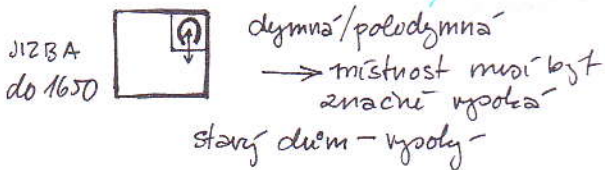 JIZBA
do 1650
dymná/polodymná
→ místnost musí být
značně vysoká
starý dům – vysoký –